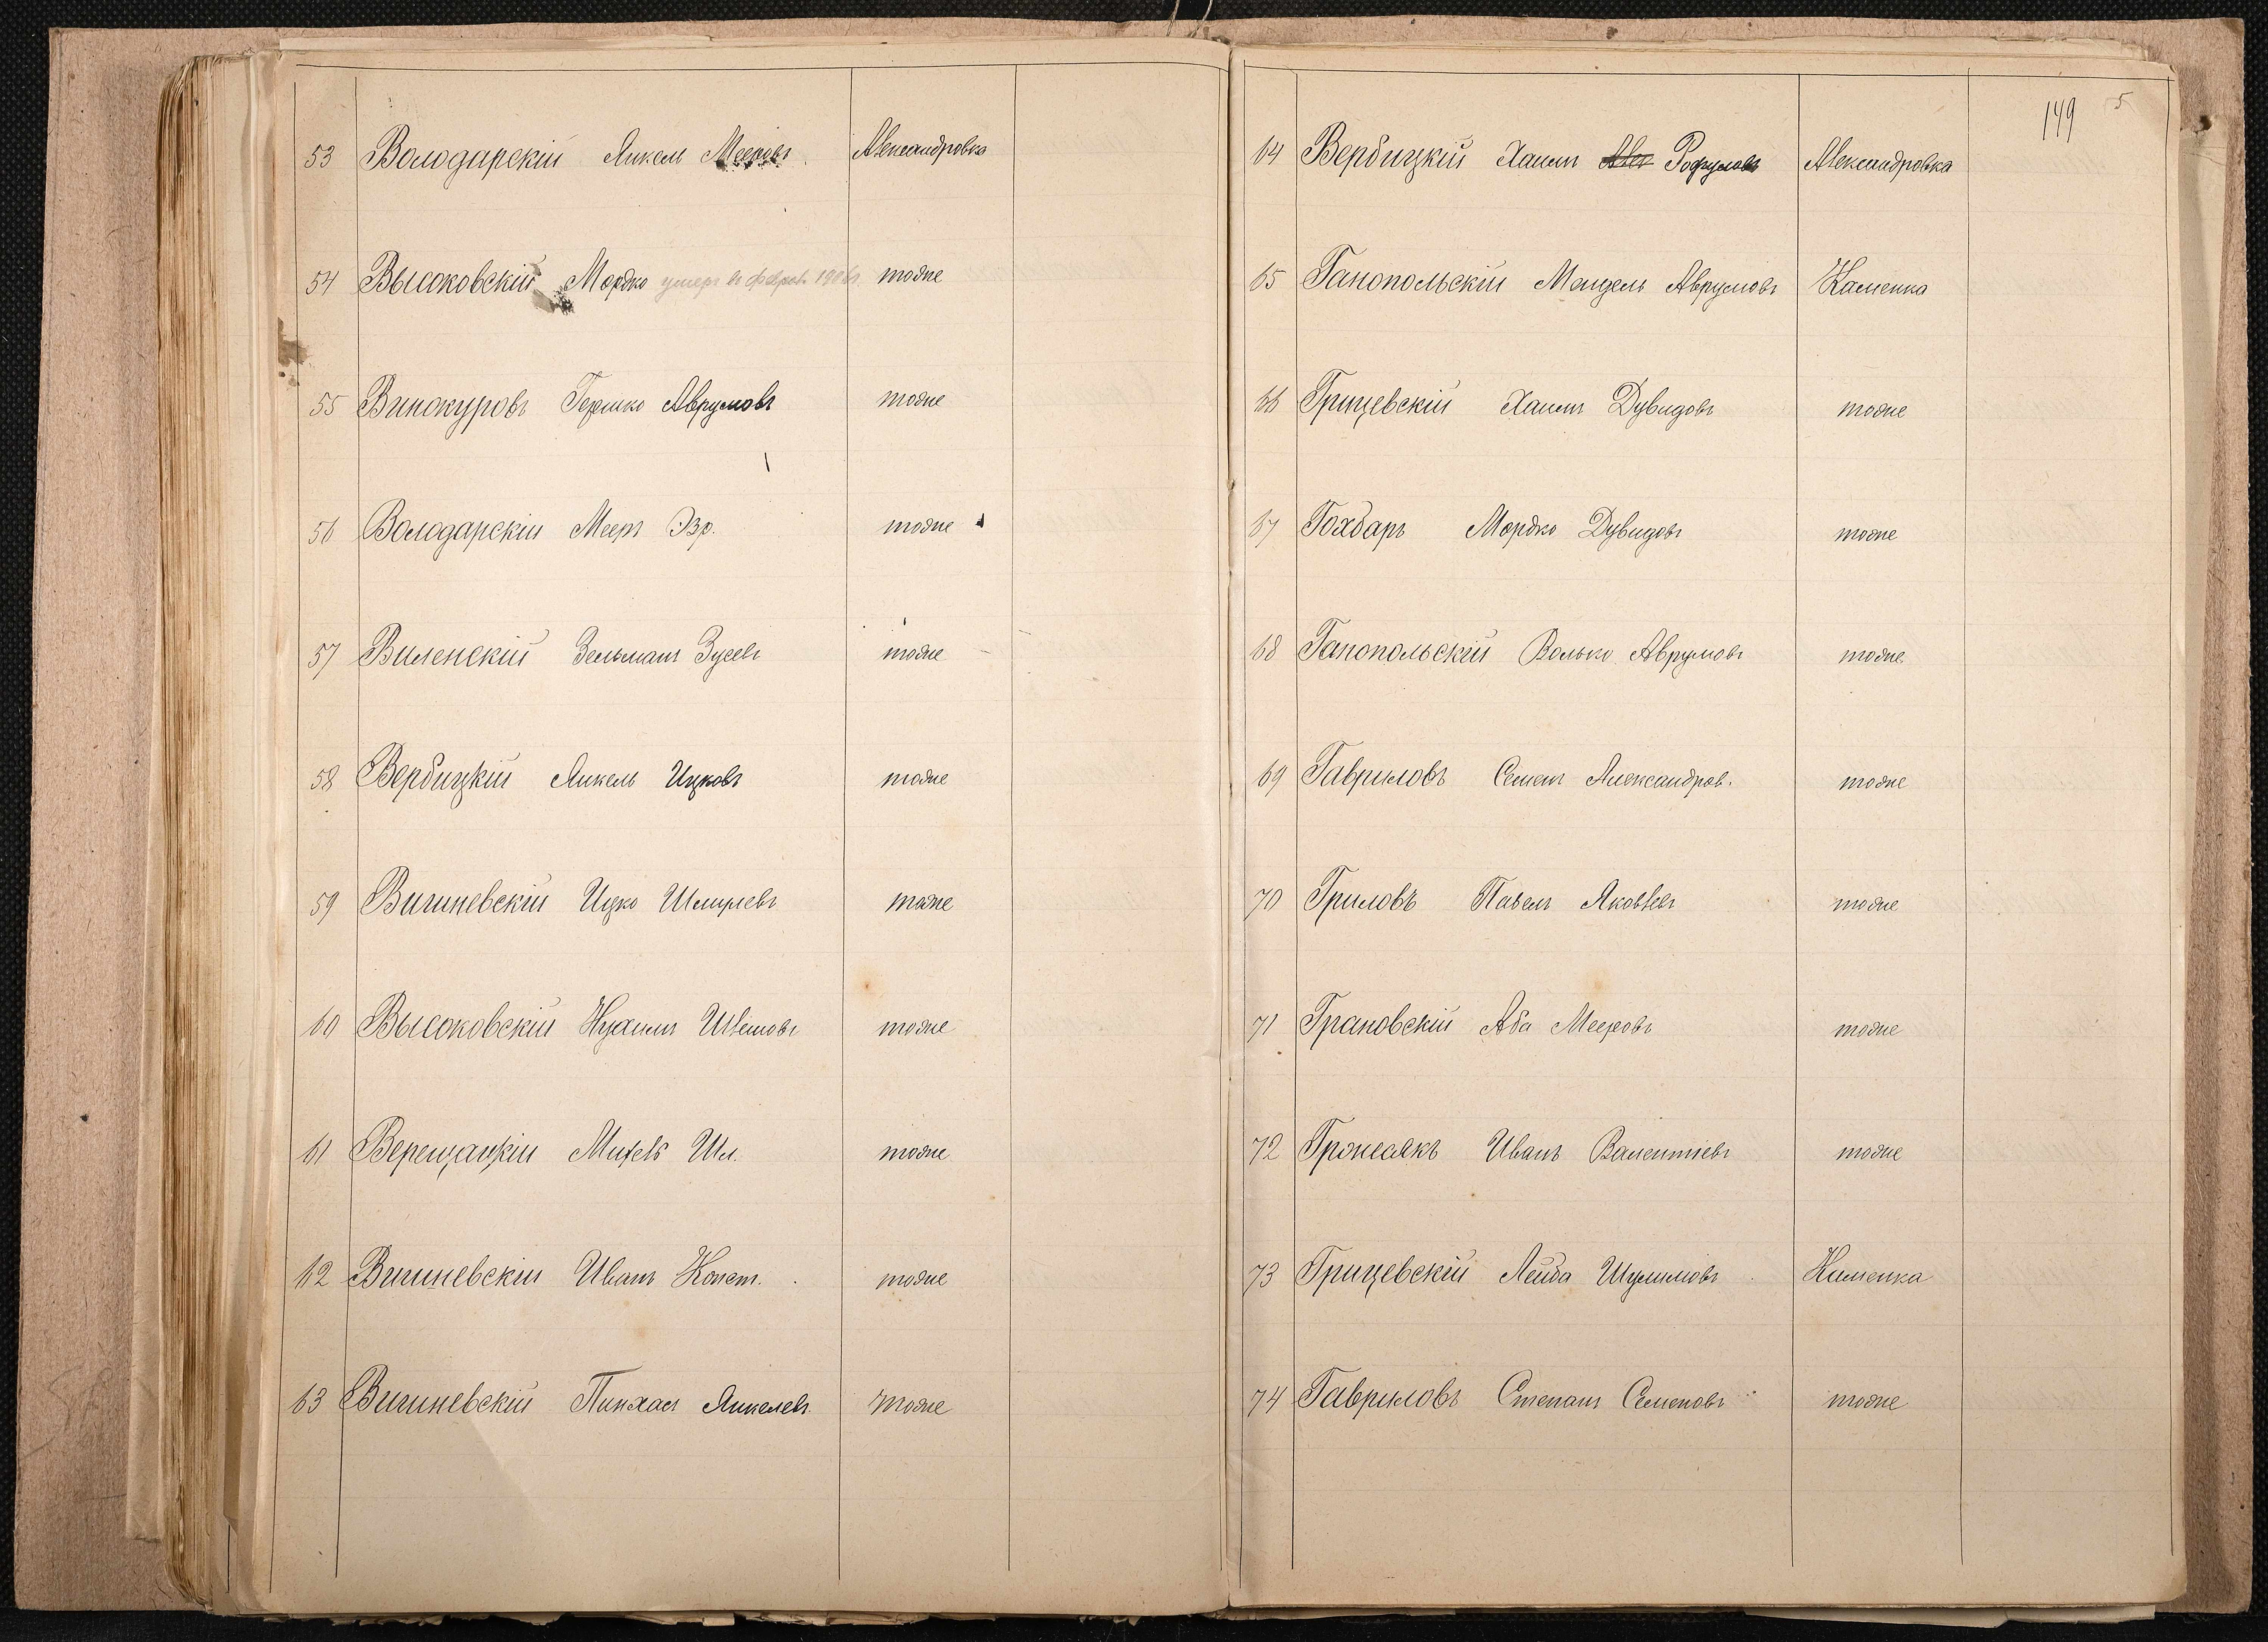 53 Володарскій Янкель Мееровъ Александровка
54 Высоковскій Мордко умеръ въ феврал. 1906г. тоже
55 Винокуровъ Гершко Аврумовъ тоже
56 Володарскій Мееръ Эзр. тоже
57 Виленскій Зельманъ Зусевъ тоже
58 Вербицкій Янкель Ицковъ тоже
59 Вишневскій Ицко Шмулевъ тоже
60 Высоковскій Нухимъ тоже
61 Верещацкій Шл. тоже
62 Вишневскій Иванъ Конст. тоже
63 Вишневскій Пинхас Янкелевъ тоже
149 5
64 Вербицкій Хаимъ Рофуловъ Александровка
65 Ганопольскій Мендель Аврумовъ Каменка
66 Грицевскій Хаимъ Дувидовъ тоже
67 Гохбаръ Мордко Дувидовъ тоже
68 Ганопольскій Волько Аврумовъ тоже
69 Гавриловъ Семенъ Александров. тоже
70 Гриловъ Павелъ Яковлевъ тоже
71 Грановскій Аба Мееровъ тоже
72 Гржесякъ Иванъ Валентіевъ тоже
73 Грицевскій Лейба Шулимовъ Каменка
74 Гавриловъ Степанъ Семеновъ тоже